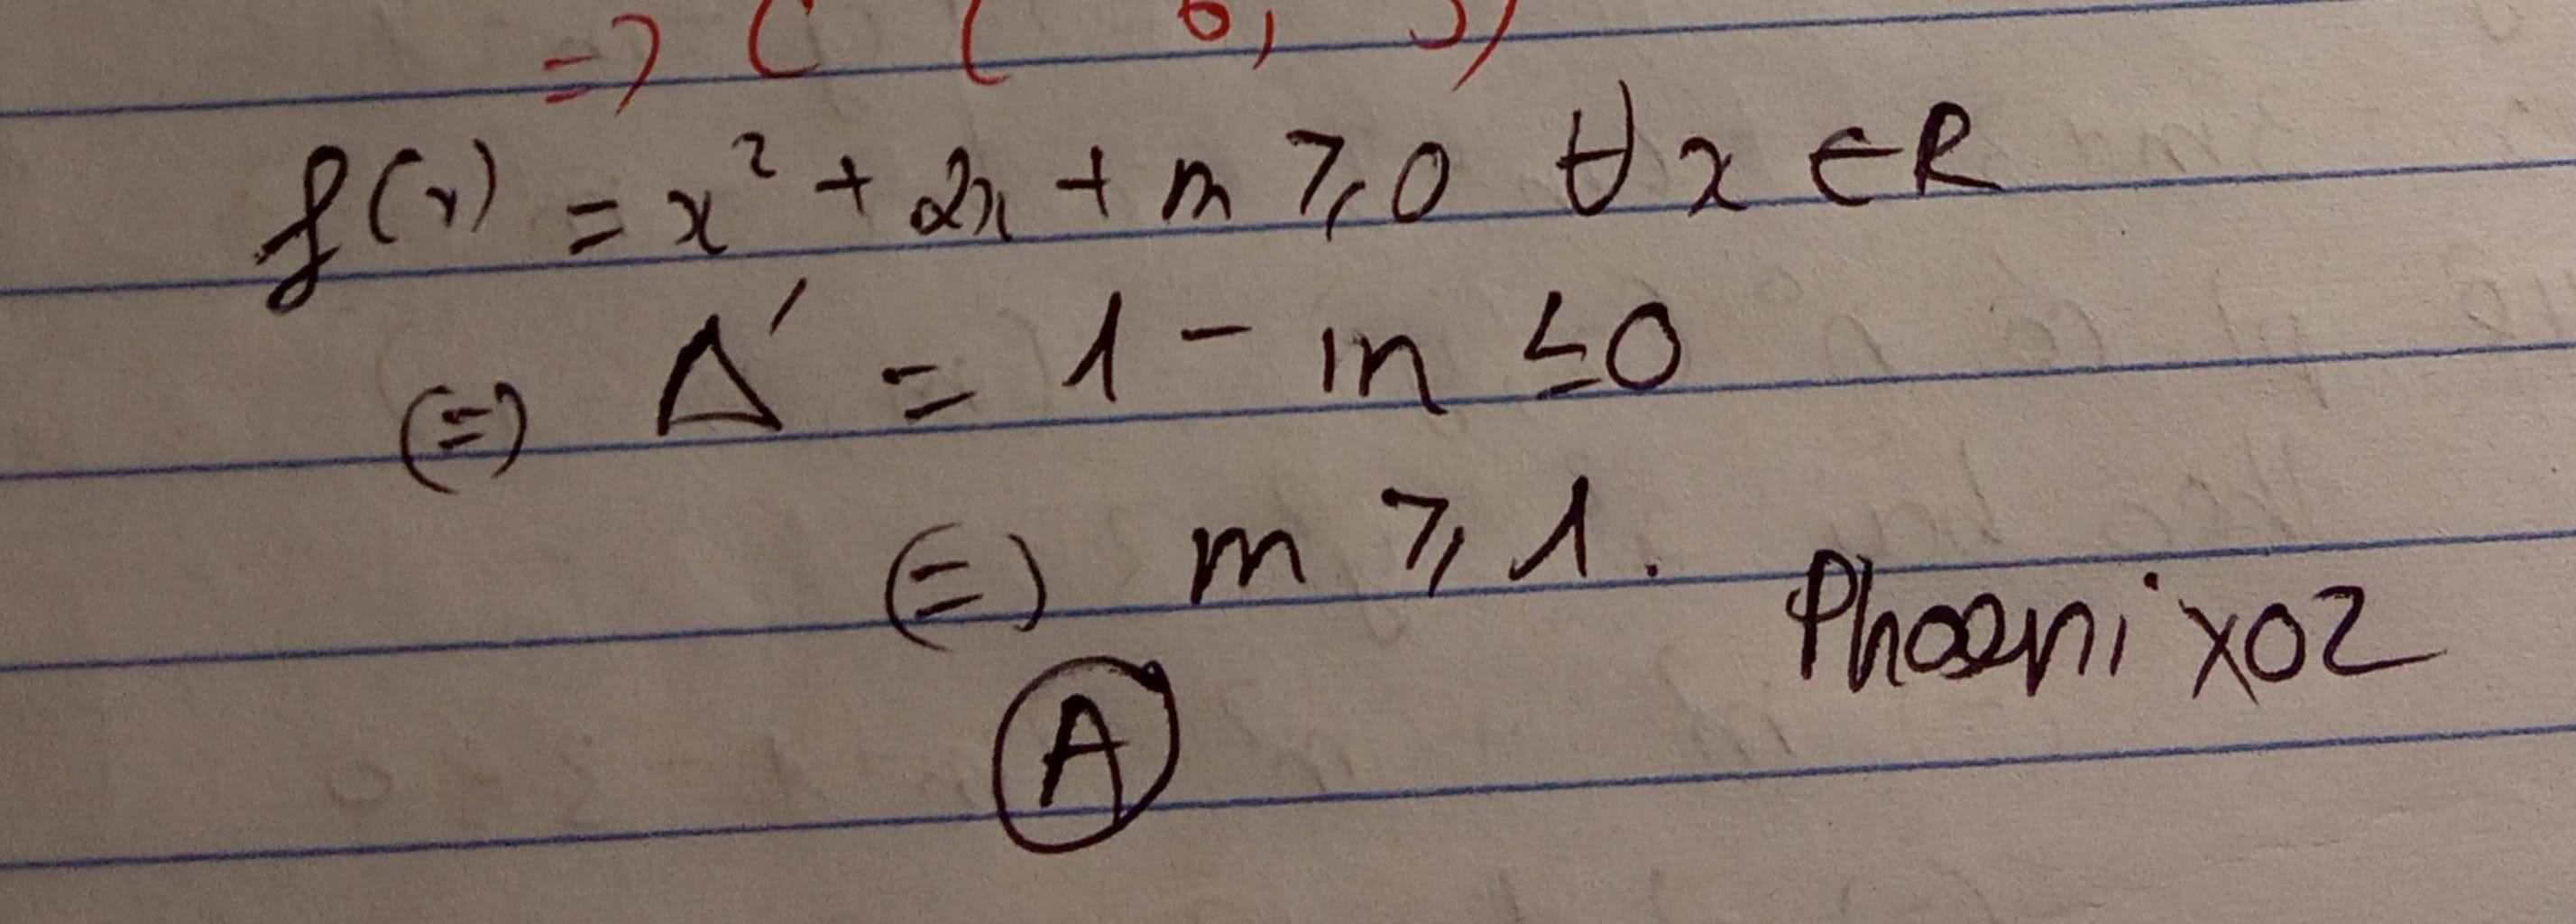 => C ( 6, 5)
f(x) = x² + 2x + m ≥ 0 ∀ x ∈ R
(=) Δ' = 1 - m ≤ 0
(=) m ≥ 1.
Phoenix02
A